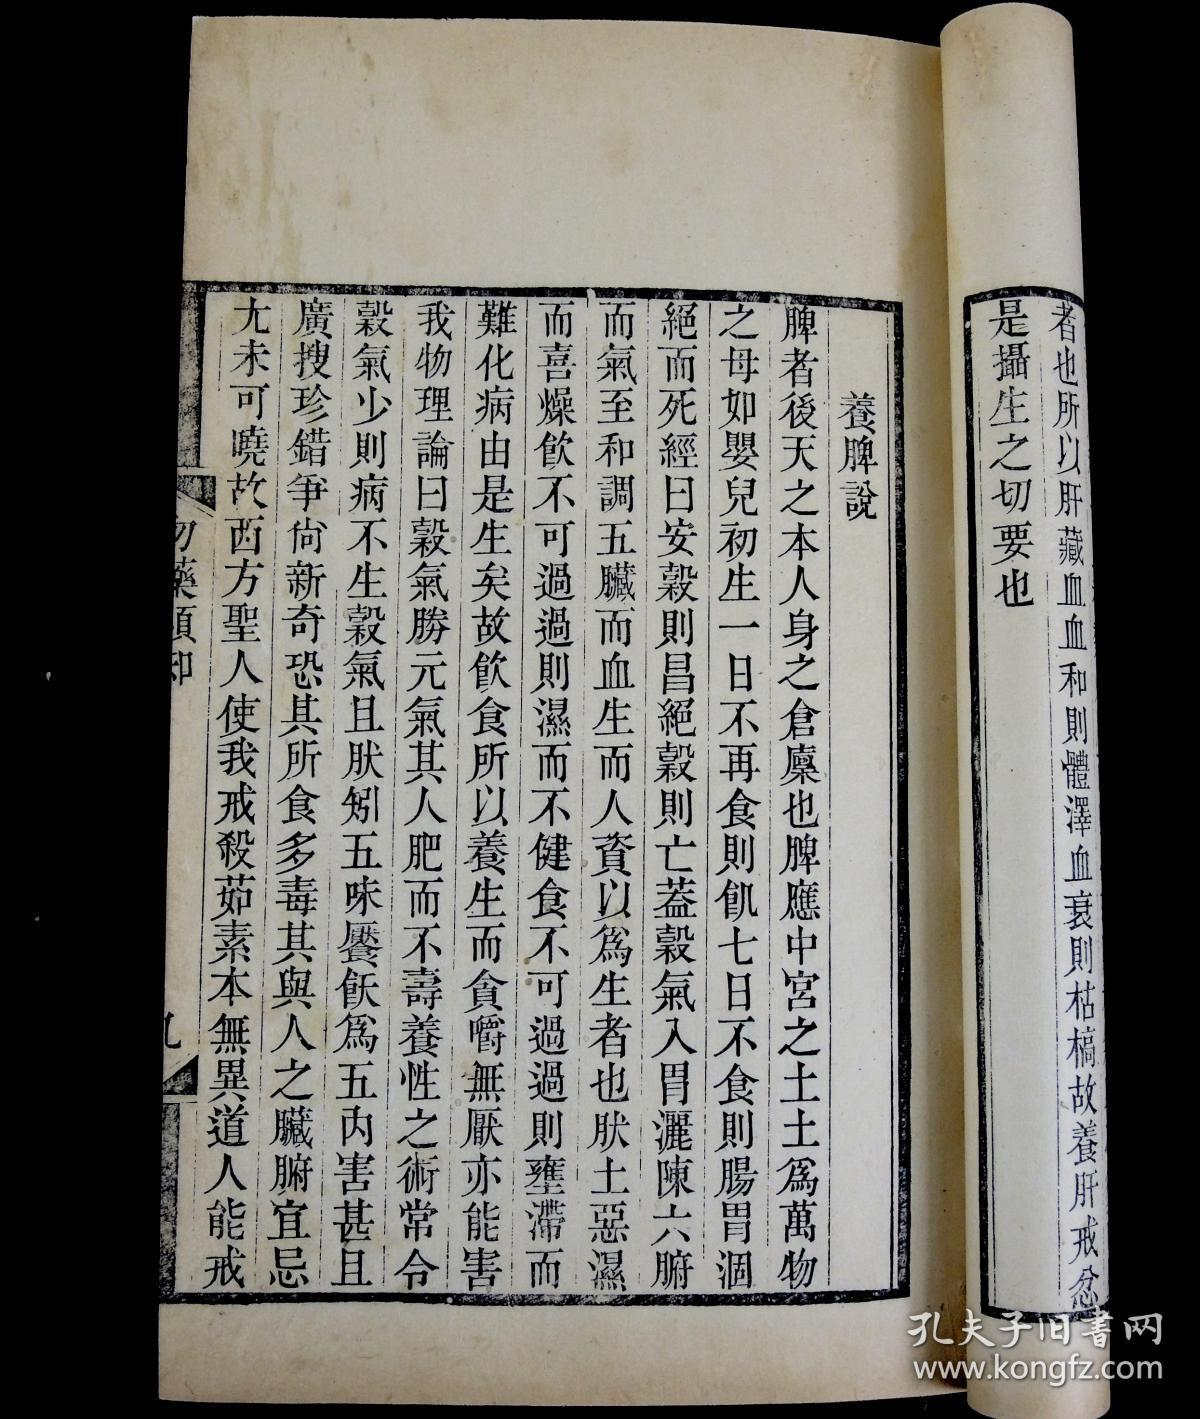 者也所以肝藏血血和則體澤血衰則枯槁故養肝戒忿
是攝生之切要也
養脾說
脾者後天之本人身之倉廩也脾應中宮之土土爲萬物
之母如嬰兒初生一日不再食則飢七日不食則腸胃涸
絕而死經曰安穀則昌絕穀則亡蓋穀氣入胃灑陳六腑
而氣至和調五臟而血生而人資以爲生者也肰土惡濕
而喜燥飲不可過過則濕而不健食不可過過則壅滯而
難化病由是生矣故飲食所以養生而貪嚼無厭亦能害
我物理論曰穀氣勝元氣其人肥而不壽養性之術常令
穀氣少則病不生穀氣且肰矧五味饜飫爲五內害甚且
廣搜珍錯爭尙新奇恐其所食多毒其與人之臟腑宜忌
尢未可曉故西方聖人使我戒殺茹素本無異道人能戒
勿藥須知
九
孔夫子旧書网
www.kongfz.com